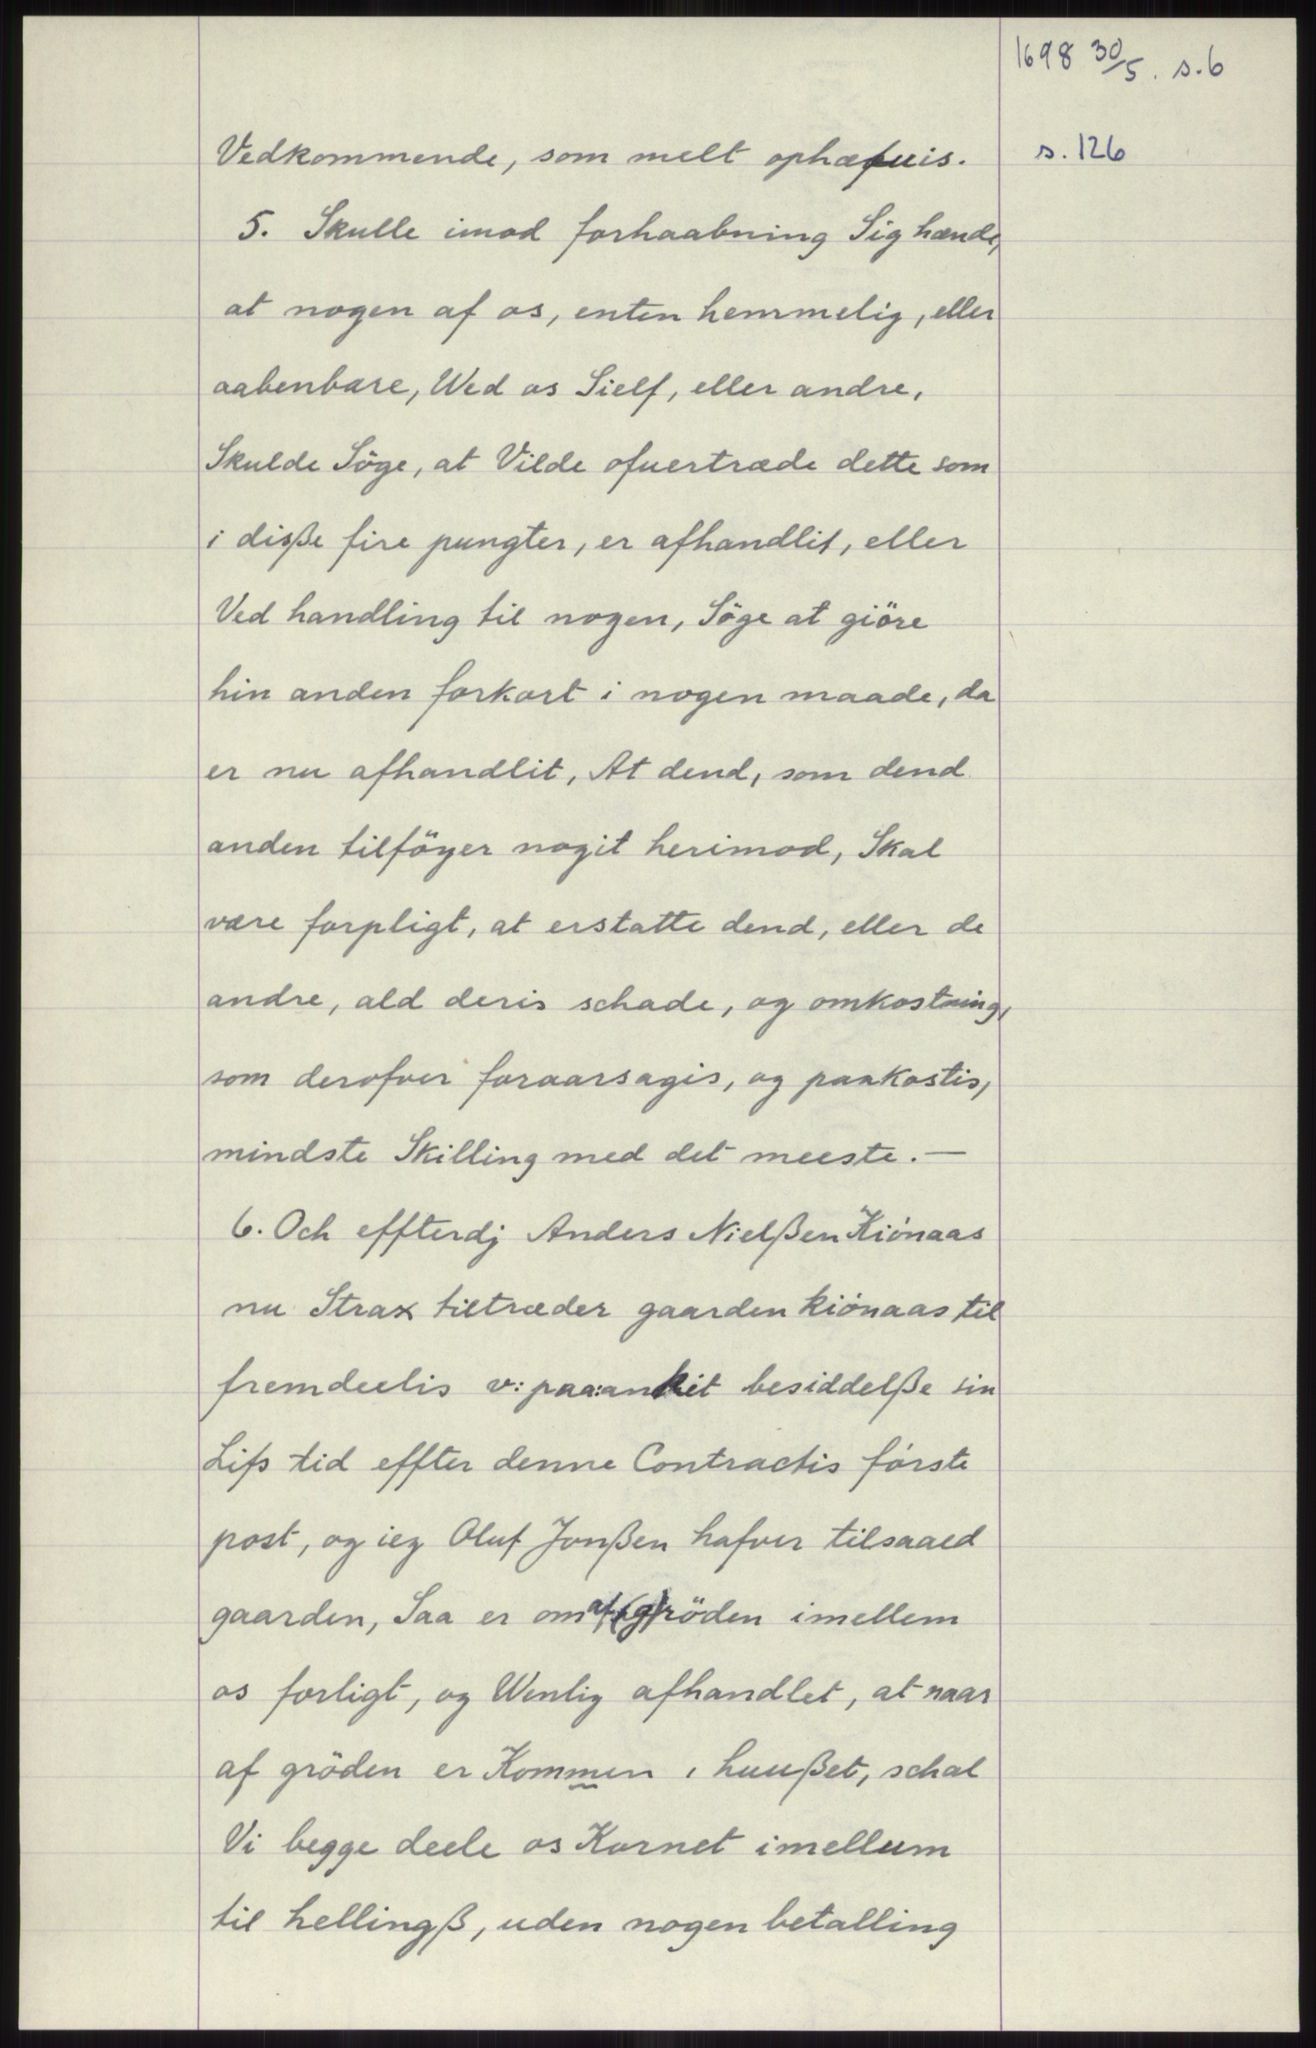 1698 30/5. s.6
Vedkommende, som melt ophæfuis.
s. 126
5. Skulle imod forhaabning Sig hænde,
at nogen af os, enten hemmelig, eller
aabenbare, Wed os Sielf, eller andre,
Skulde Söge, at Vilde ofuertræde dette som
i diße fire pungter, er afhandlit, eller
Ved handling til nogen, Söge at giöre
hin anden forkort i nogen maade, da
er nu afhandlit, At dend, som dend
anden tilföyer nogit herimod, Skal
være forpligt, at erstatte dend, eller de
andre, ald deris schade, og omkostning,
som derofver foraarsagis, og paakostis,
mindste Skilling med det meeste.—
6. Och effterdj Anders Nielßen Kiönaas
nu Strax tiltræder gaarden kiönaas til
fremdeelis v: paa:ankit besiddelße sin
Lifs tid effter denne Contractis förste
post, og ieg Oluf Jonßen hafver tilsaaed
gaarden, Saa er om af(g)röden imellem
os forligt, og Wenlig afhandlet, at naar
af gröden er Kommen i huußet, schal
Vi begge deele os Kornet imellum
til hellingß, uden nogen betalling